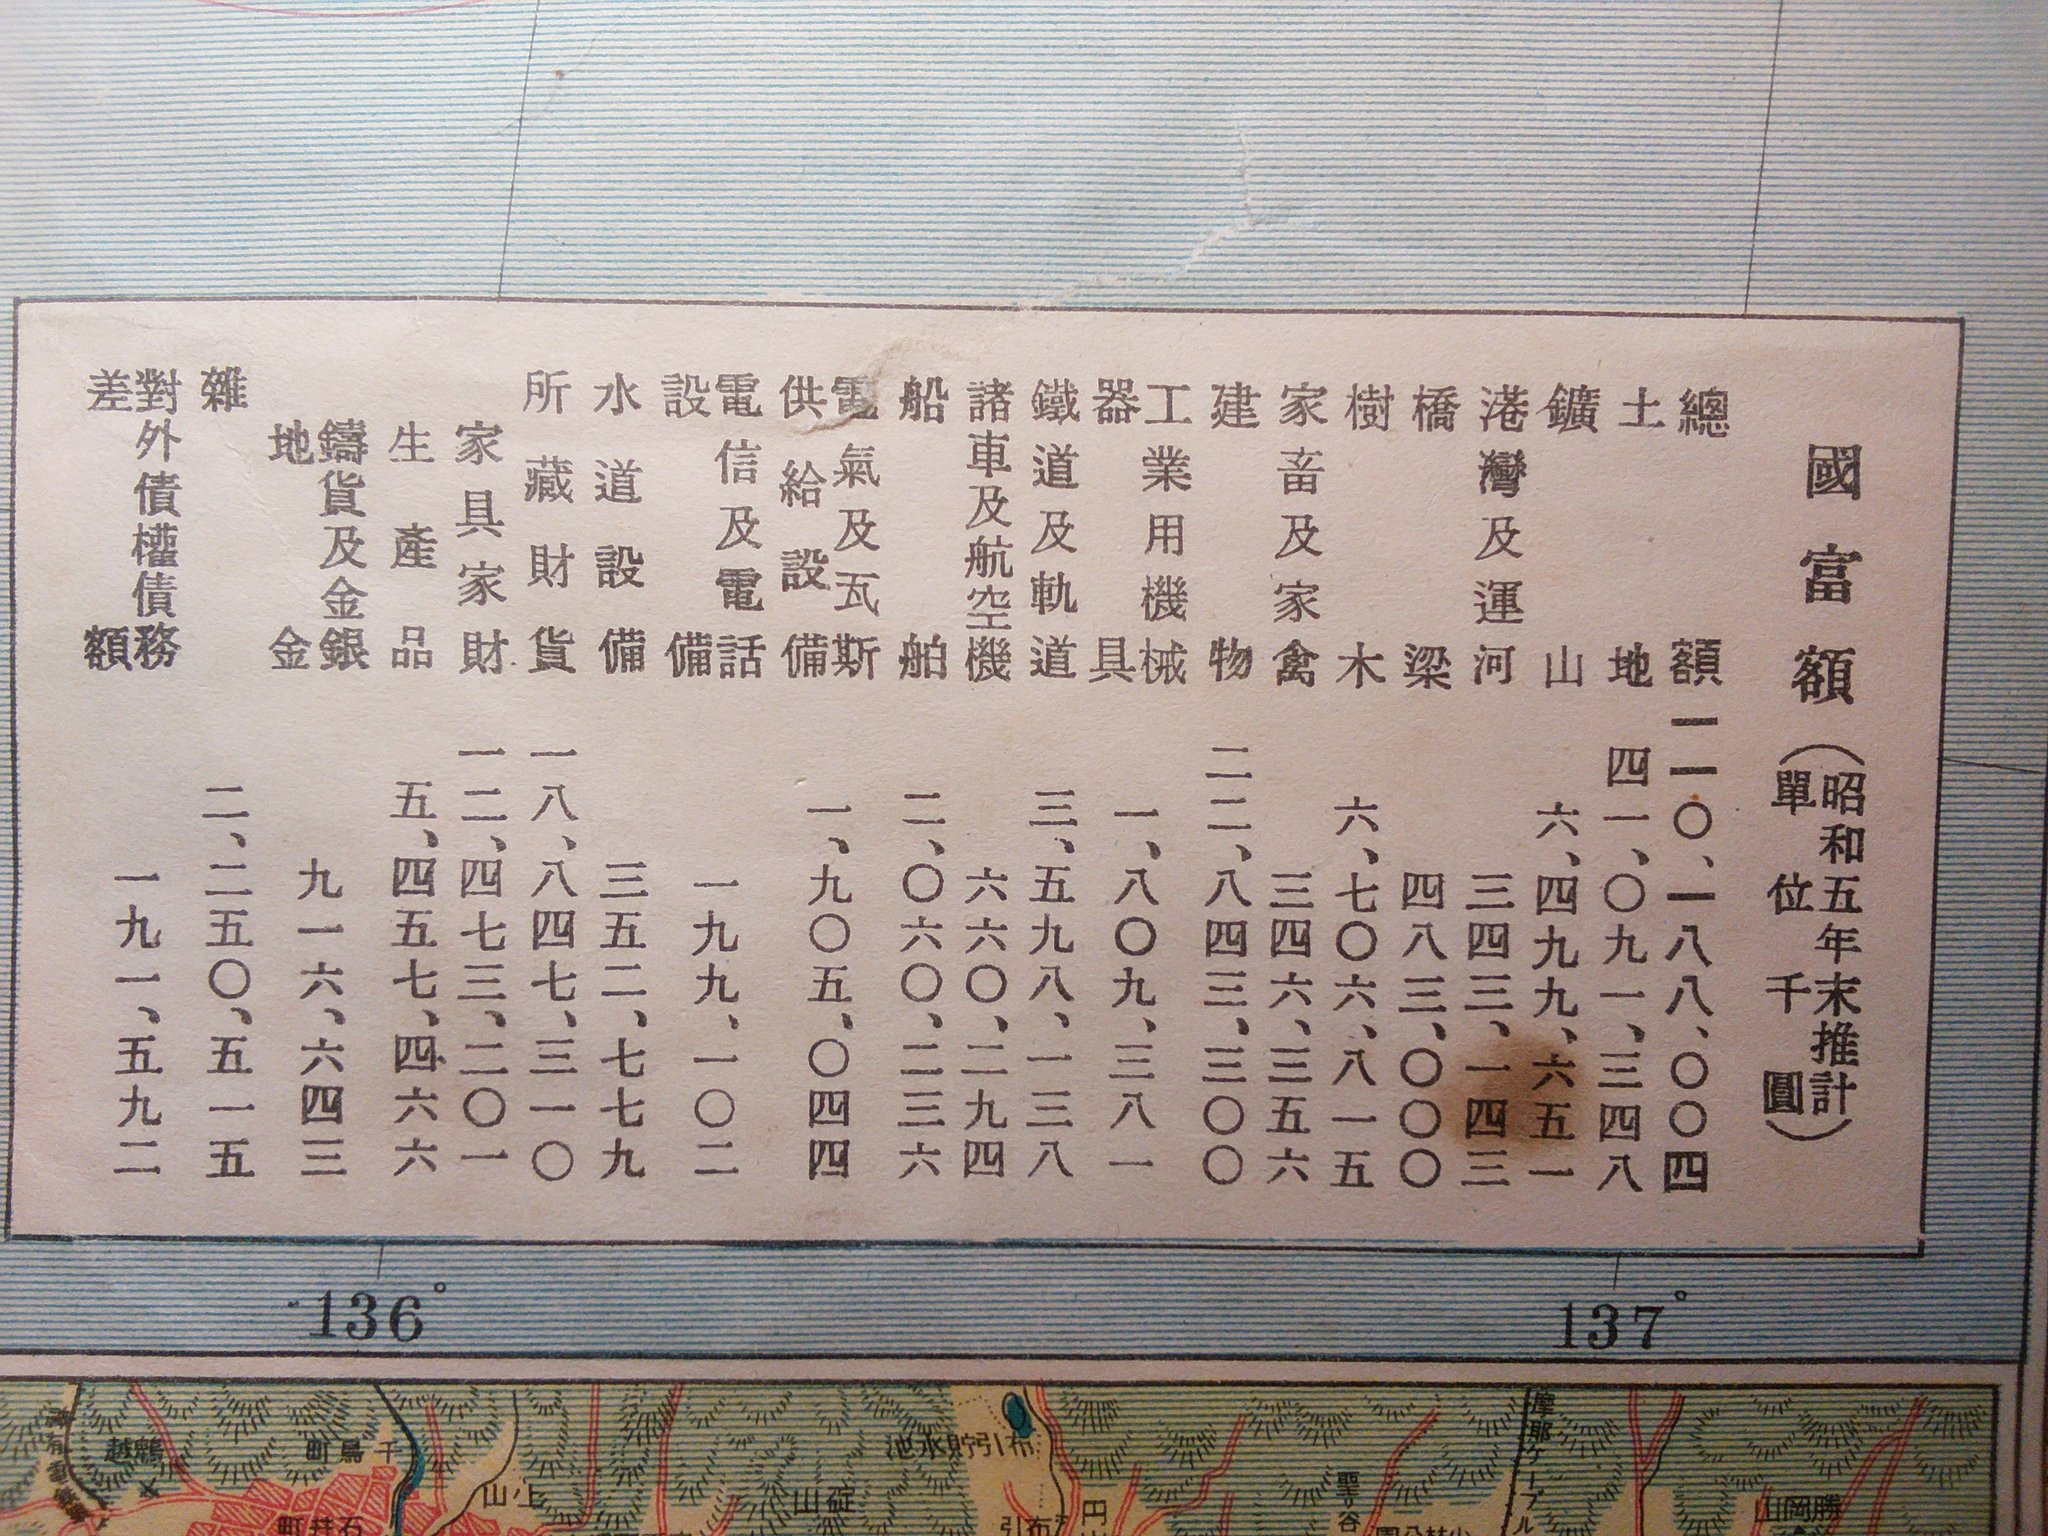 國富額(昭和五年末推計單位千圓)
總額 一一〇、一八八、〇〇四
土地 四一、〇九一、三四八
鑛山 六、四九九、六五一
港灣及運河 三四三、一四三
橋梁 四八三、〇〇〇
樹木 六、七〇六、八一五
家畜及家禽 三四六、三五六
建物 二二、八四三、三〇〇
工業用機械器具 一、八〇九、三八一
鐵道及軌道 三、五九八、一三八
諸車及航空機 六六〇、二九四
船舶 二、〇六〇、二三六
電氣及瓦斯供給設備 一、九〇五、〇四四
電信及電話設備 一九九、一〇二
水道設備 三五二、七七九
所藏財貨 一八、八四七、三一〇
家具家財 一二、四七三、二〇一
生產品 五、四五七、四六六
鑄貨及金銀地金 九一六、六四三
雜 二、二五〇、五一五
對外債權債務差額 一九一、五九二
136°
137°
鵯越
千鳥町
石井町
上山
碇山
布引貯水池
布引
円山
聖谷
摩耶ケーブル
勝岡山